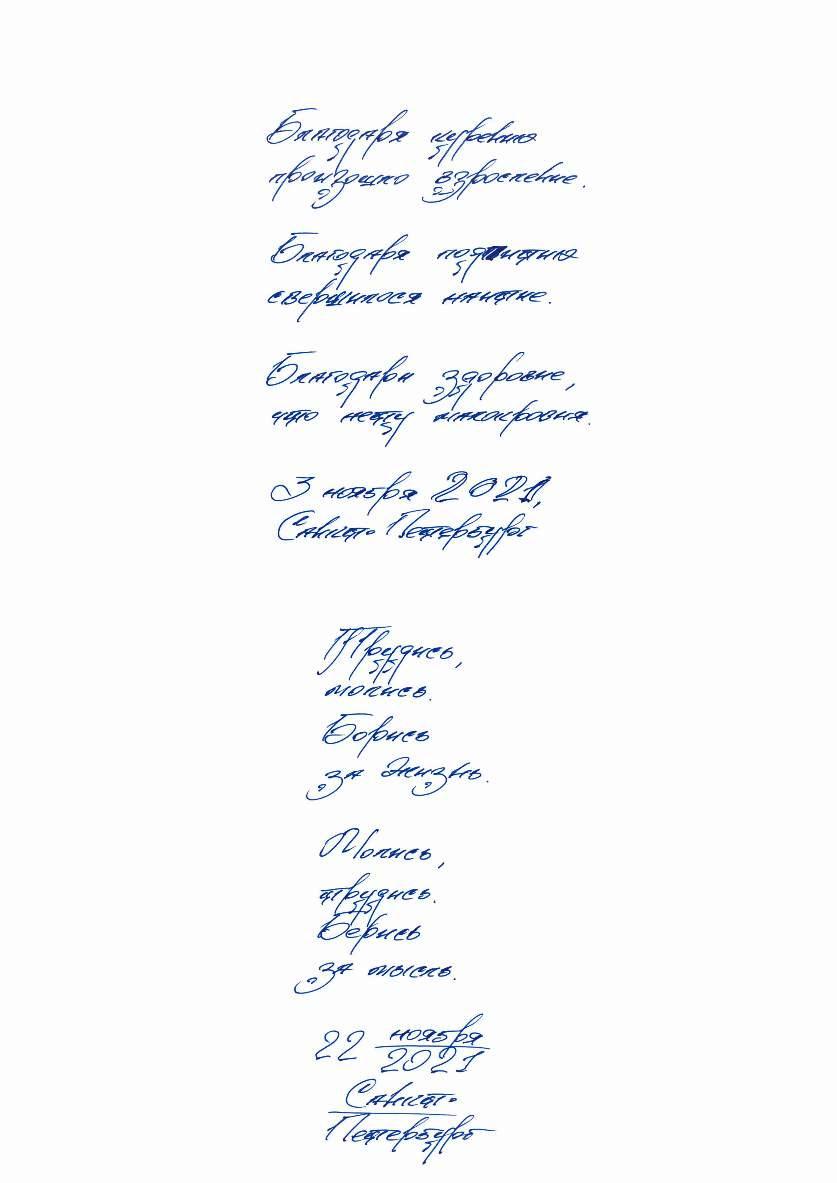 Благодаря курению
произошло взросление.
Благодаря подпитию
свершилося наитие.
Благодари здоровие,
что нету малокровия.
3 ноября 2021,
Санкт-Петербург
Трудись,
молись.
Борись
за жизнь.
Молись,
трудись.
Берись
за мысль.
22 ноября
2021
Санкт-
Петербург